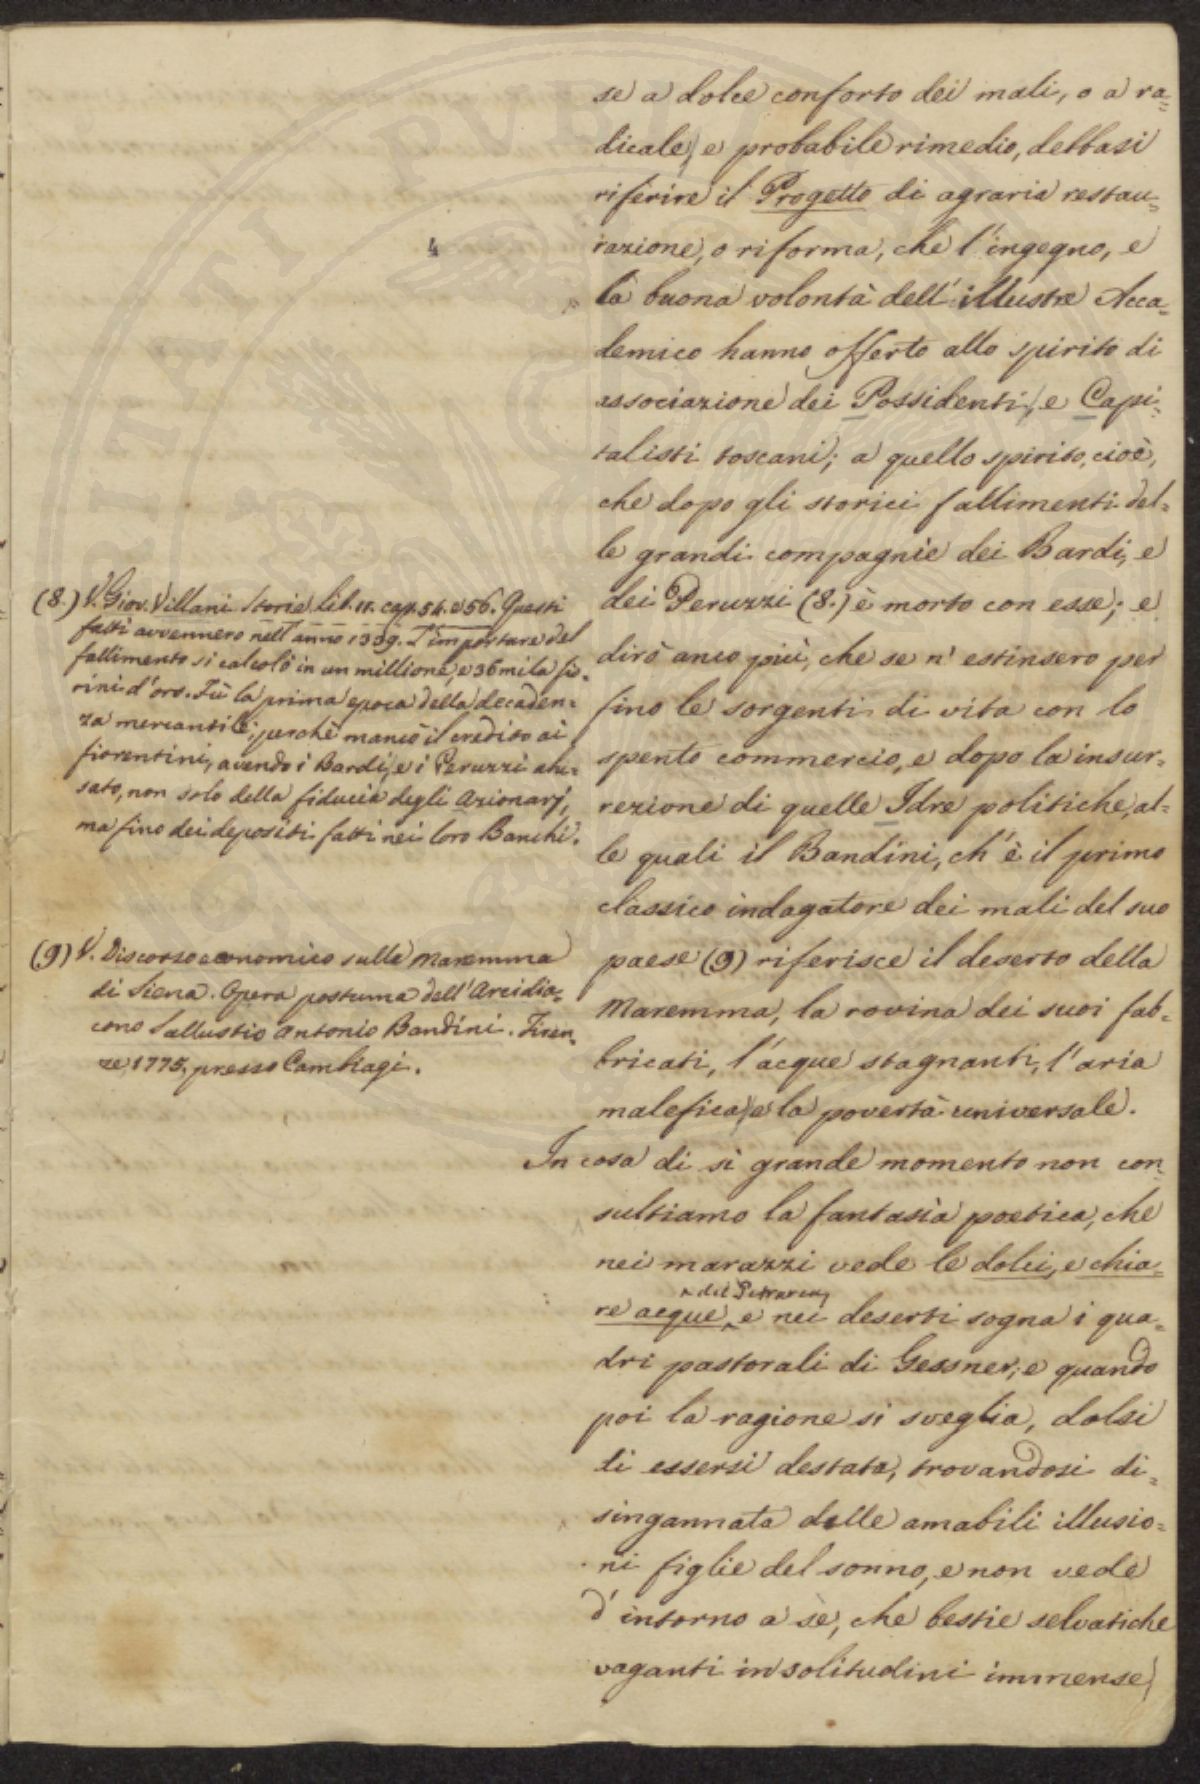 se a dolce conforto dei mali, o a ra=
dicale, e probabile rimedio, debbasi
riferire il Progetto di agraria restau=
razione, o riforma, che l'ingegno, e
la buona volontà dell'illustre Acca=
demico hanno offerto allo spirito di
associazione dei Possidenti, e Capi=
talisti toscani; a quello spirito, cioè,
che dopo gli storici fallimenti del=
le grandi compagnie dei Bardi, e
dei Peruzzi (8.) è morto con esse; e
dirò anco più, che se n' estinsero per
fino le sorgenti di vita con lo
spento commercio, e dopo la insur=
rezione di quelle Idre politiche, al=
le quali il Bandini, ch'è il primo
classico indagatore dei mali del suo
paese (9) riferisce il deserto della
Maremma, la rovina dei suoi fab=
bricati, l'acque stagnanti, l'aria
malefica, e la povertà universale.
In cosa di sì grande momento non con=
sultiamo la fantasìa poetica, che
nei marazzi vede le dolci, e chia=
^ del Petrarca,
re acque, ^ e nei deserti sogna i qua=
dri pastorali di Gessner; e quando
poi la ragione si sveglia, dolsi
di essersi destata, trovandosi di=
singannata dalle amabili illusio=
ni figlie del sonno, e non vede
d'intorno a sè, che bestie selvatiche
vaganti in solitudini immense,
4
(8.) V. Giov. Villani Storie Lib. 11. cap. 54. e 56. Questi
fatti avvennero nell'anno 1339. L'importare del
fallimento si calcolò in un millione, e 36 mila fio=
rini d'oro. Fù la prima epoca della decaden=
za mercantile, perchè mancò il credito ai
fiorentini, avendo i Bardi, e i Peruzzi abu=
sato, non solo della fiducia degli Azionarj,
ma fino dei depositi fatti nei loro Banchi.
(9) V. Discorso economico sulla Maremma
di Siena. Opera postuma dell'Arcidia=
cono Sallustio Antonio Bandini. Firen=
ze, 1775, presso Cambiagi.